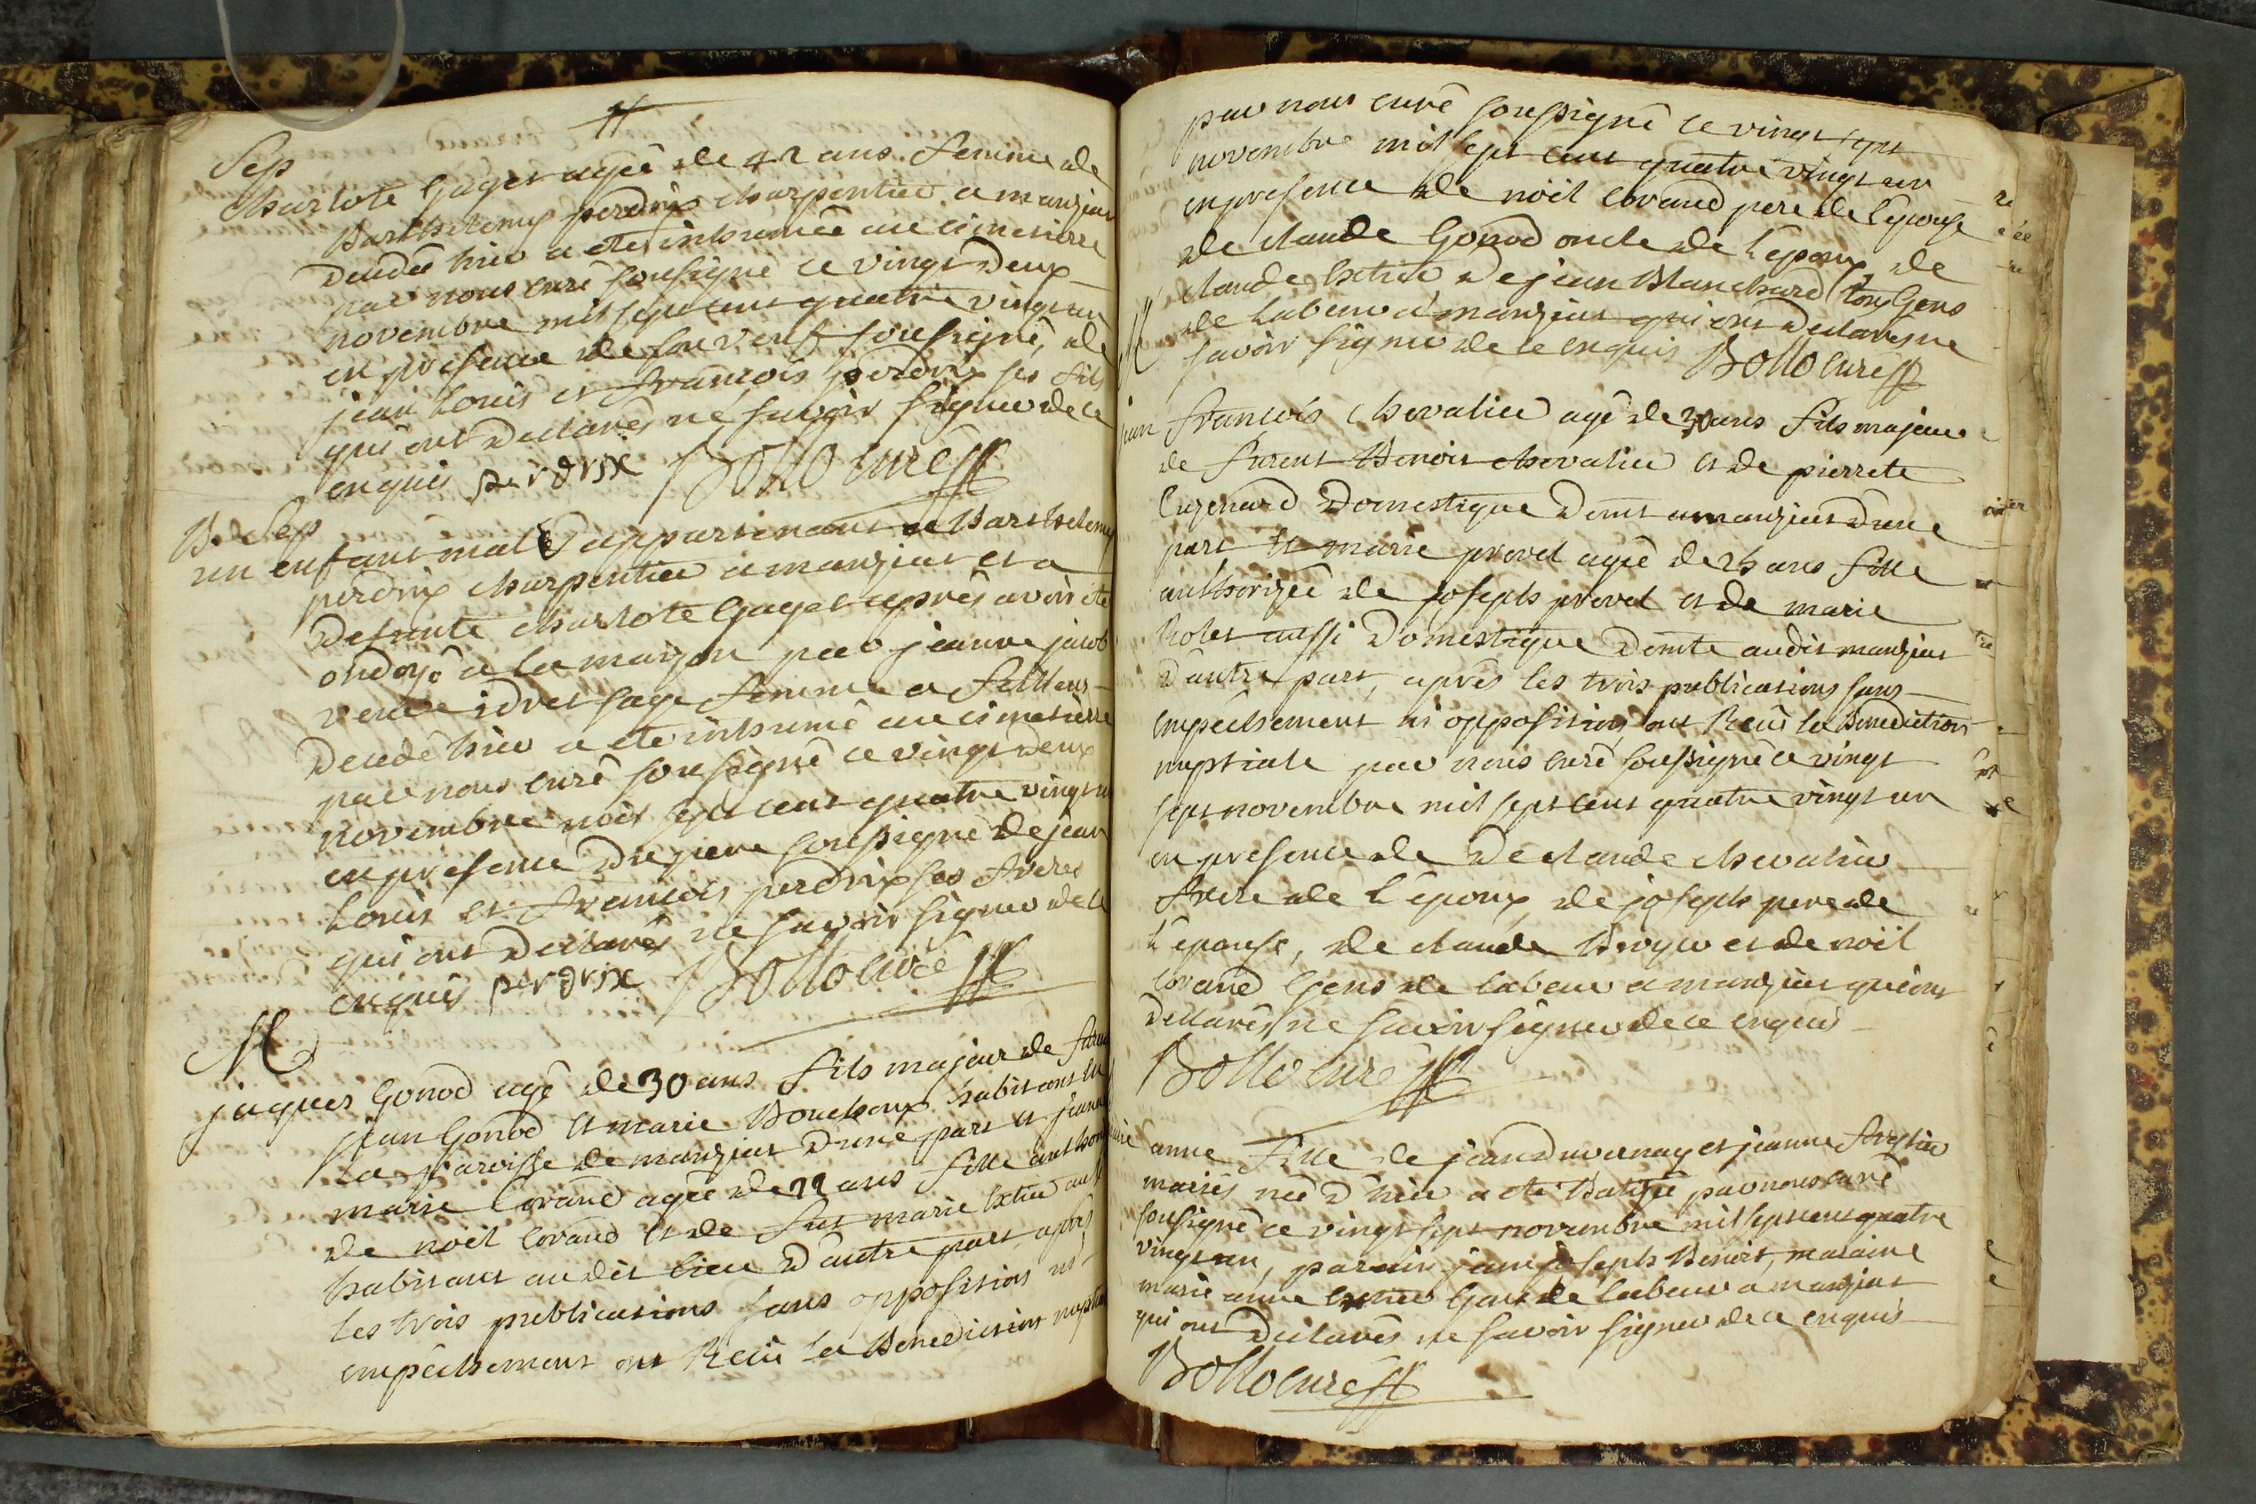 Sep
charlote Gayet agée de 42 ans femme de
Barthelemy perdrix charpentier a manziat
decedée hier a ete inhumée au cimetierre
par nous curé sousigné ce vingt deux
novembre mil sept cent quatre vingt un
en presence de son veuf sousigné, de
jean Louis et francois perdrix ses fils
qui ont declarés ne savoir signer de ce
enquis perdrix Bollo curé
B. de Sep
un enfant mal appartenant a Barthelemy
perdrix charpentier a manziat et a
defunte charlote Gayet après avoir été
ondoyé a la maizon par jeanne jacob
veuve sage femme a
decedé hier a ete inhumé au cimetierre
par nous curé sousigné ce vingt deux
novembre mil sept cent quatre vingt un
en presence du pere sousigné de jean
Louis et francois perdrix ses freres
qui ont declarés ne savoir signer de ce
enquis perdrix Bollo curé
M
jaques Gonod agé de 30 ans fils majeur de
jean Gonod et marie Bouchoux habitant
La paroisse de manziat d'une part et jeanne
marie Corand agée de 22 ans fille
de noël Corand et de fut marie
habitant au dit lieu d'autre part après
les trois publications sans opposition ni
empêchement ont Reçû la Benediction
par nous curé sousigné ce vingt sept
novembre mil sept cent quatre vingt un
en presence de noël Corand pere de l'epouse
de claude Gonod oncle de l'epoux, de
claude de jean Blanchard tous Gens
de Labeur a manziat qui ont declarés ne
savoir signer de ce enquis Bollo curé
M
jean francois chevalier agé de 30 ans fils majeur
de furent Benoit chevalier et de pierrete
domestique demt a manziat d'une
part et marie provel agée de 25 ans fille
authorizée de joseph provel et de marie
Rolet aussi domestique demte audit manziat
d'autre part, après les trois publications sans
empêchement ni opposition, ont Reçû la Benediction
nuptiale par nous curé sousigné ce vingt
sept novembre mil sept cent quatre vingt un
en presence de de claude chevalier
frere de l'epoux, de joseph pere de
l'epouse, de claude et de noël
Corand Gens de Labeur a manziat qui ont
declarés ne savoir signer de ce enquis
Bollo curé
anne fille de jean duvernay et jeanne
mariés née d'hier a ete Batizée par nous curé
sousigné ce vingt sept novembre mil sept cent quatre
vingt un, parain jean joseph Benoit, maraine
marie anne Gens de Labeur a manziat
qui ont declarés ne savoir signer de ce enquis
Bollo curé